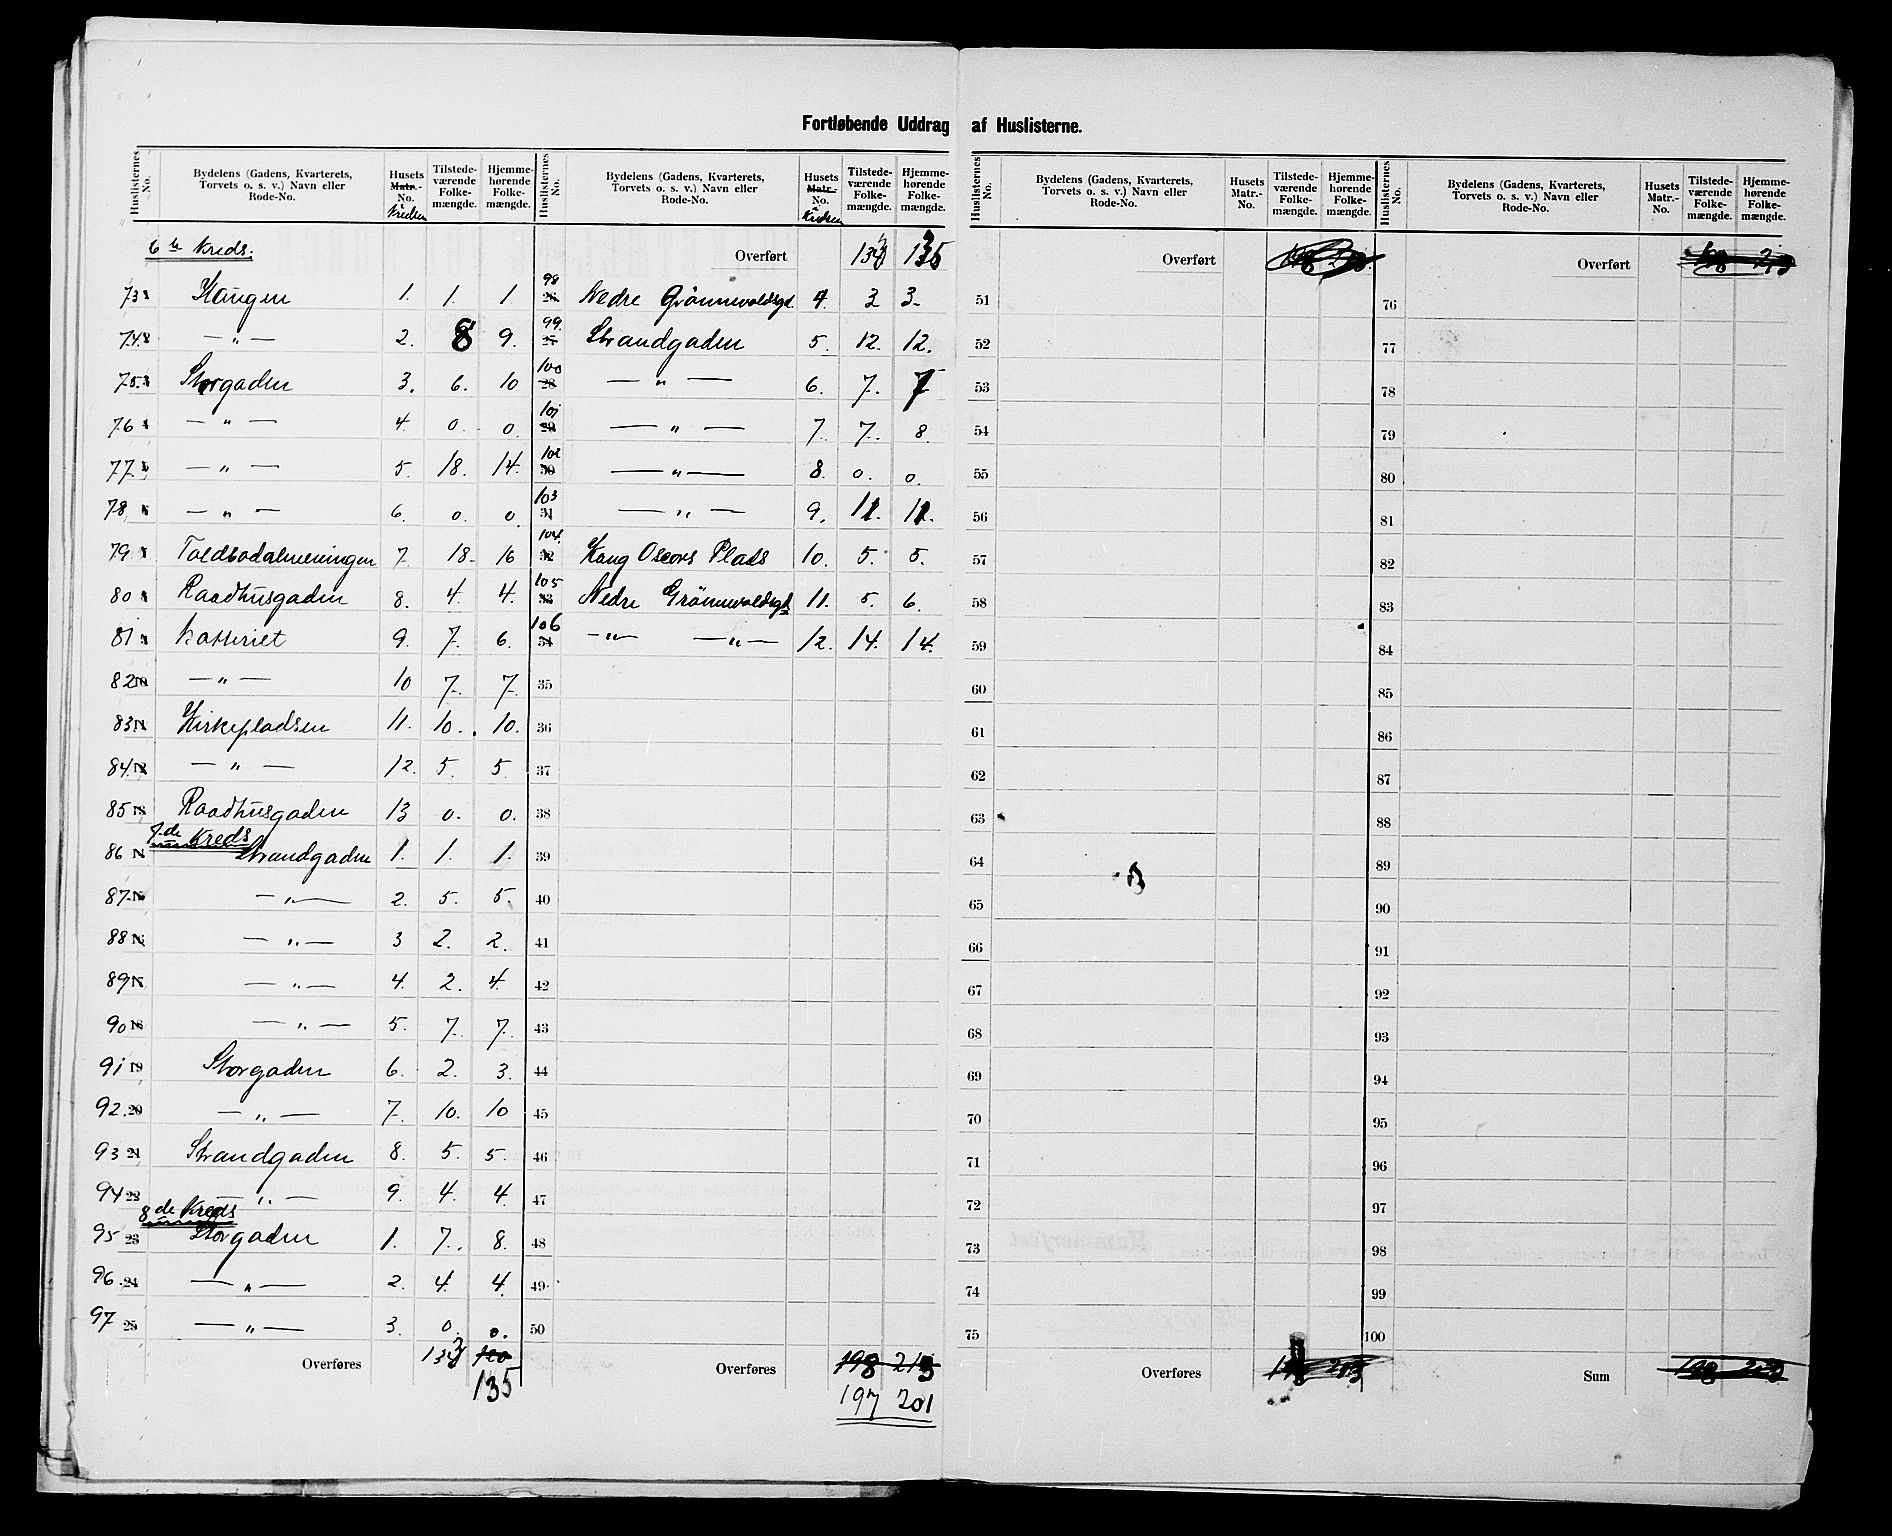 Fortløbende Uddrag af Huslisterne.
Huslisternes No. | Bydelens (Gadens, Kvarterets, Torvets o. s. v.) Navn eller Rode-No. | Husets Matr.-No. i Kredsen | Tilstedeværende Folkemængde. | Hjemmehørende Folkemængde.
6te Kreds:
73 1 Haugen 1. 1. 1.
74 2 — " — 2. 8 9.
75. 3 Storgaden 3. 6. 10
76 4 — " — 4. 0. 0.
77. 5 — " — 5. 18. 14.
78 6 — " — 6. 0. 0
79 7 Toldbodalmeningen 7. 18. 16
80 8 Raadhusgaden 8. 4. 4.
81 9 Batteriet 9. 7. 6.
82 10 — " — 10 7. 7.
83. 11 Kirkepladsen 11. 10. 10.
84. 12 — " — 12. 5. 5.
85 13 Raadhusgaden 13 0. 0.
7de Kreds
86 14 Strandgaden 1. 1. 1.
87 15 — " — 2. 5. 5.
88 16 — " — 3 2. 2.
89 17 — " — 4. 2. 4.
90 18 — " — 5. 7. 7.
91 19 Storgaden 6. 2. 3.
92. 20 — " — 7. 10. 10
93 21 Strandgaden 8. 5. 5.
94 22 — " — 9. 4. 4.
8de Kreds
95 23 Storgaden 1. 7. 8.
96. 24 — " — 2. 4. 4.
97 25 — " — 3. 0. 0.
Overføres 133
135
Huslisternes No. | Bydelens (Gadens, Kvarterets, Torvets o. s. v.) Navn eller Rode-No. | Husets Matr.-No. i Kredsen | Tilstedeværende Folkemængde. | Hjemmehørende Folkemængde.
Overført 133 135
98 26 Nedre Grønnevoldsgd. 4. 3 3.
99. 27 Strandgaden 5. 12. 12.
100 28 — " — 6. 7. 7
101 29 — " — 7. 7. 8.
102 30 — " — 8. 0. 0.
103 31 — " — 9. 11. 11.
104. 32 Kong Oscars Plads 10. 5. 5.
105 33 Nedre Grønnevoldsgd 11. 5. 6.
106 34 — " — — " — 12. 14. 14.
35
36
37
38
39
40
41
42
43
44
45
46
47
48
49
50
Overføres 198 213
197 201
Huslisternes No. | Bydelens (Gadens, Kvarterets, Torvets o. s. v.) Navn eller Rode-No. | Husets Matr.-No. | Tilstedeværende Folkemængde. | Hjemmehørende Folkemængde.
Overført
51
52
53
54
55
56
57
58
59
60
61
62
63
64
65
66
67
68
69
70
71
72
73
74
75
Overføres
Huslisternes No. | Bydelens (Gadens, Kvarterets, Torvets o. s. v.) Navn eller Rode-No. | Husets Matr.-No. | Tilstedeværende Folkemængde. | Hjemmehørende Folkemængde.
Overført
76
77
78
79
80
81
82
83
84
85
86
87
88
89
90
91
92
93
94
95
96
97
98
99
100
Sum